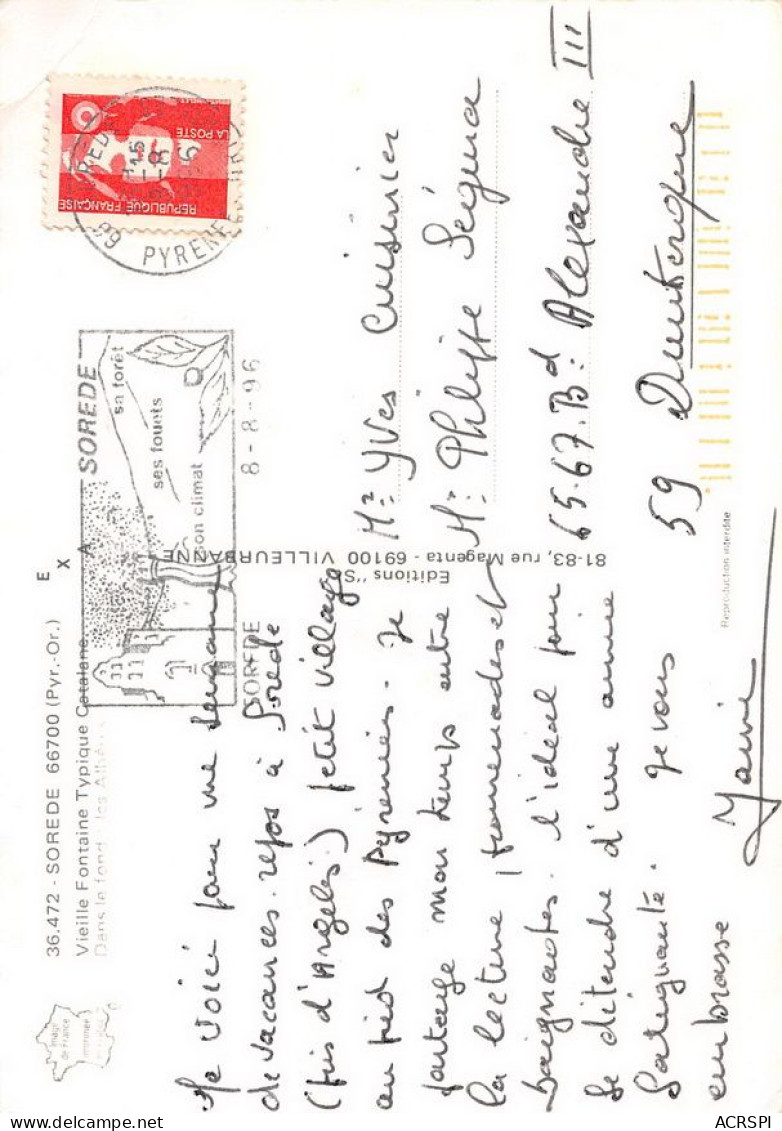 36.472 - SOREDE 66700 (Pyr.-Or.)
Vieille Fontaine Typique Catalane
Dans le fond : les Albères
E
x
A
Image
de France
Me voici pour une semaine
de vacances-repos à Sorède
(près d'Argelès) petit village
au pied des Pyrénées. Je
partage mon temps entre
la lecture, promenades et
baignades. L'idéal pour
se détendre d'une année
fatiguante. Je vous
embrasse
Editions "S
81-83, rue Magenta - 69100 VILLEURBANNE
Reproduction interdite
REPUBLIQUE FRANÇAISE
LA POSTE
66 PYRENE
SOREDE
sa forêt
ses fouets
son climat
SOREDE
8-8-96
Mr Yves Cuisinier
Mr Philippe Seigneur
65-67. Bd: Alexandre III
59 Dunkerque
ACRSPI